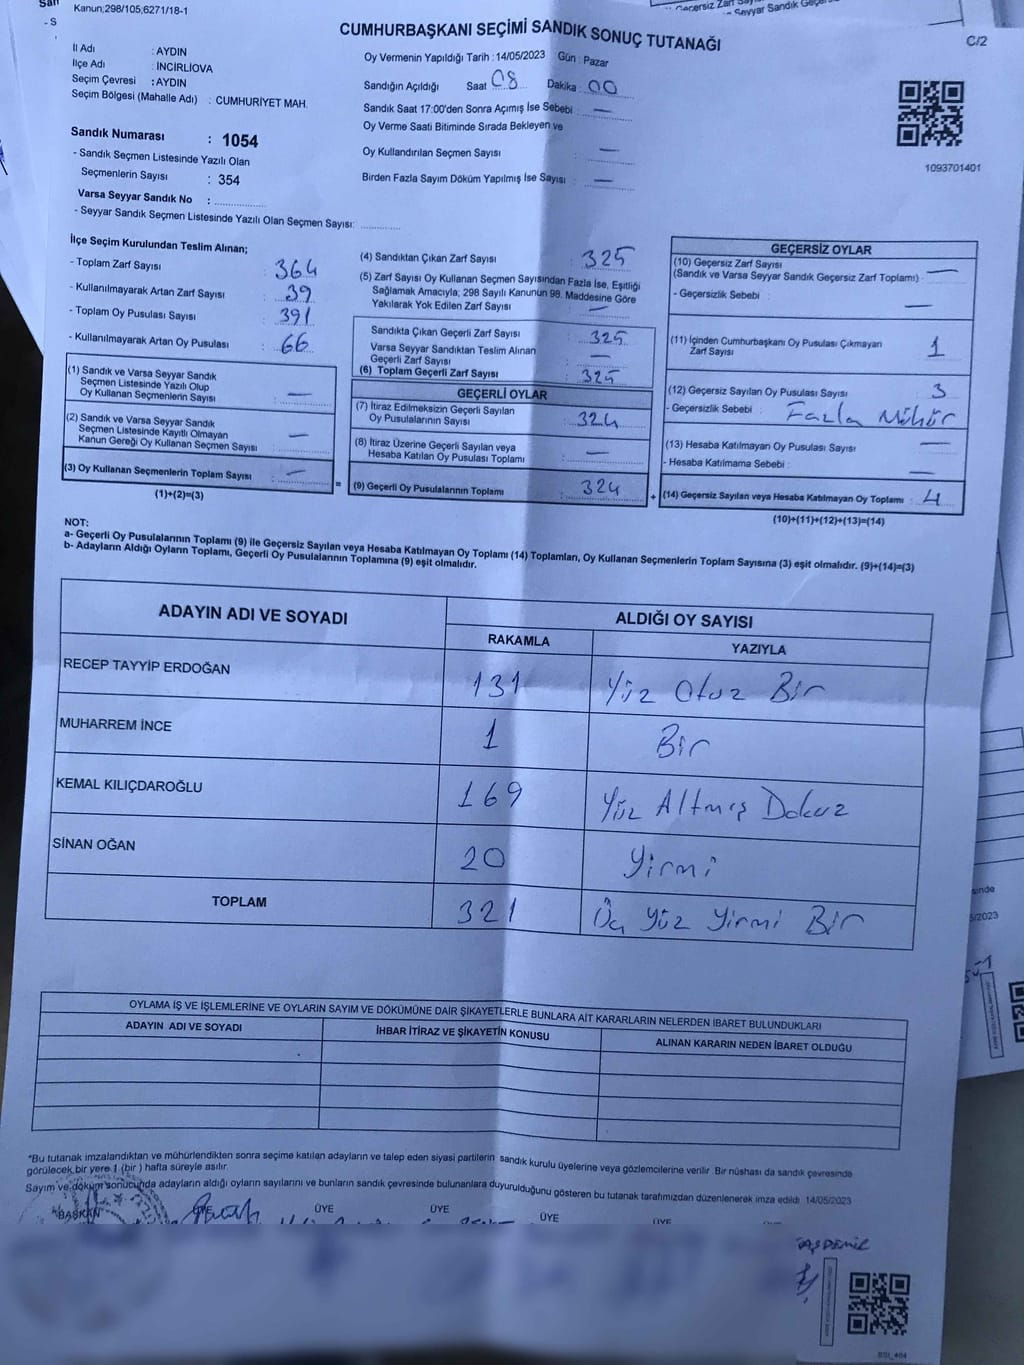 Kanun;298/105,6271/18-1
CUMHURBAŞKANI SEÇİMİ SANDIK SONUÇ TUTANAĞI
C/2
İl Adı : AYDIN
İlçe Adı : İNCİRLİOVA
Seçim Çevresi : AYDIN
Seçim Bölgesi (Mahalle Adı) : CUMHURİYET MAH.
Sandık Numarası : 1054
- Sandık Seçmen Listesinde Yazılı Olan
Seçmenlerin Sayısı : 354
Varsa Seyyar Sandık No :
- Seyyar Sandık Seçmen Listesinde Yazılı Olan Seçmen Sayısı:
Oy Vermenin Yapıldığı Tarih : 14/05/2023 Gün : Pazar
Sandığın Açıldığı Saat 08 Dakika : 00
Sandık Saat 17:00'den Sonra Açımış İse Sebebi : —
Oy Verme Saati Bitiminde Sırada Bekleyen ve
Oy Kullandırılan Seçmen Sayısı : —
Birden Fazla Sayım Döküm Yapılmış İse Sayısı : —
1093701401
İlçe Seçim Kurulundan Teslim Alınan;
- Toplam Zarf Sayısı : 364
- Kullanılmayarak Artan Zarf Sayısı : 39
- Toplam Oy Pusulası Sayısı : 391
- Kullanılmayarak Artan Oy Pusulası : 66
(1) Sandık ve Varsa Seyyar Sandık
Seçmen Listesinde Yazılı Olup
Oy Kullanan Seçmenlerin Sayısı : —
(2) Sandık ve Varsa Seyyar Sandık
Seçmen Listesinde Kayıtlı Olmayan
Kanun Gereği Oy Kullanan Seçmen Sayısı : —
(3) Oy Kullanan Seçmenlerin Toplam Sayısı : —
(1)+(2)=(3)
(4) Sandıktan Çıkan Zarf Sayısı : 325
(5) Zarf Sayısı Oy Kullanan Seçmen Sayısından Fazla İse, Eşitliği
Sağlamak Amacıyla; 298 Sayılı Kanunun 98. Maddesine Göre
Yakılarak Yok Edilen Zarf Sayısı : —
Sandıkta Çıkan Geçerli Zarf Sayısı : 325
Varsa Seyyar Sandıktan Teslim Alınan
Geçerli Zarf Sayısı : —
(6) Toplam Geçerli Zarf Sayısı : 325
GEÇERLİ OYLAR
(7) İtiraz Edilmeksizin Geçerli Sayılan
Oy Pusulalarının Sayısı : 324
(8) İtiraz Üzerine Geçerli Sayılan veya
Hesaba Katılan Oy Pusulası Toplamı : —
= (9) Geçerli Oy Pusulalarının Toplamı : 324
GEÇERSİZ OYLAR
(10) Geçersiz Zarf Sayısı
(Sandık ve Varsa Seyyar Sandık Geçersiz Zarf Toplamı) : —
- Geçersizlik Sebebi : —
(11) İçinden Cumhurbaşkanı Oy Pusulası Çıkmayan
Zarf Sayısı : 1
(12) Geçersiz Sayılan Oy Pusulası Sayısı : 3
- Geçersizlik Sebebi : Fazla Mühür
(13) Hesaba Katılmayan Oy Pusulası Sayısı : —
- Hesaba Katılmama Sebebi : —
+ (14) Geçersiz Sayılan veya Hesaba Katılmayan Oy Toplamı : 4
(10)+(11)+(12)+(13)=(14)
NOT:
a- Geçerli Oy Pusulalarının Toplamı (9) ile Geçersiz Sayılan veya Hesaba Katılmayan Oy Toplamı (14) Toplamları, Oy Kullanan Seçmenlerin Toplam Sayısına (3) eşit olmalıdır. (9)+(14)=(3)
b- Adayların Aldığı Oyların Toplamı, Geçerli Oy Pusulalarının Toplamına (9) eşit olmalıdır.
ADAYIN ADI VE SOYADI ALDIĞI OY SAYISI
RAKAMLA YAZIYLA
RECEP TAYYİP ERDOĞAN 131 Yüz Otuz Bir
MUHARREM İNCE 1 Bir
KEMAL KILIÇDAROĞLU 169 Yüz Altmış Dokuz
SİNAN OĞAN 20 Yirmi
TOPLAM 321 Üç Yüz Yirmi Bir
OYLAMA İŞ VE İŞLEMLERİNE VE OYLARIN SAYIM VE DÖKÜMÜNE DAİR ŞİKAYETLERLE BUNLARA AİT KARARLARIN NELERDEN İBARET BULUNDUKLARI
ADAYIN ADI VE SOYADI İHBAR İTİRAZ VE ŞİKAYETİN KONUSU ALINAN KARARIN NEDEN İBARET OLDUĞU
*Bu tutanak imzalandıktan ve mühürlendikten sonra seçime katılan adayların ve talep eden siyasi partilerin sandık kurulu üyelerine veya gözlemcilerine verilir. Bir nüshası da sandık çevresinde
görülecek bir yere 1 (bir ) hafta süreyle asılır.
Sayım ve döküm sonucunda adayların aldığı oyların sayılarını ve bunların sandık çevresinde bulunanlara duyurulduğunu gösteren bu tutanak tarafımızdan düzenlenerek imza edildi. 14/05/2023
BAŞKAN ÜYE ÜYE ÜYE ÜYE